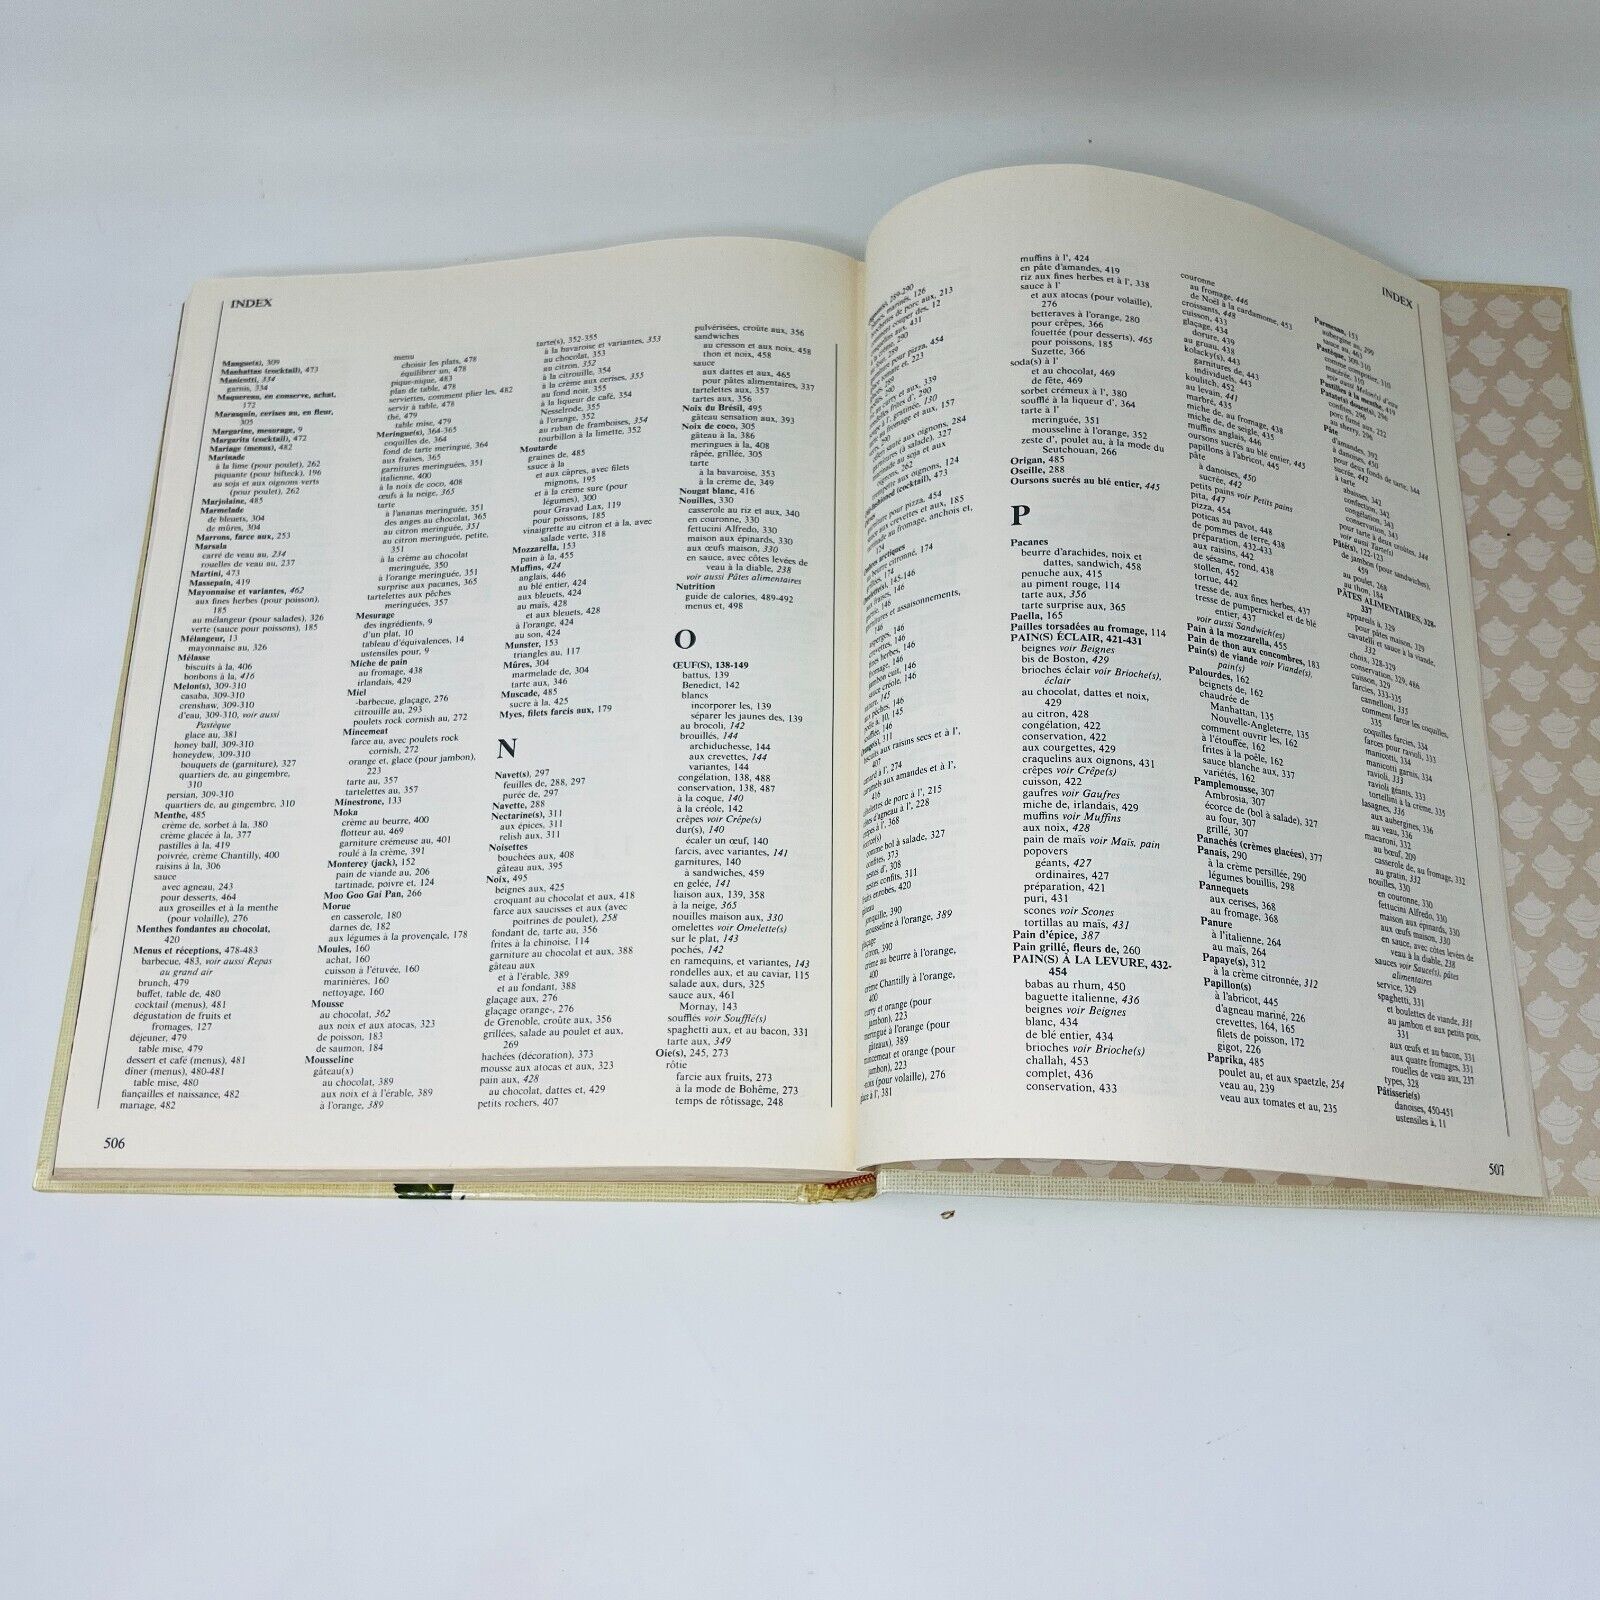 INDEX
Mangue(s), 309
Manhattan (cocktail), 473
Manicotti, 334
garnis, 334
Maquereau, en conserve, achat,
172
Marasquin, cerises au, en fleur,
305
Margarine, mesurage, 9
Margarita (cocktail), 472
Mariage (menus), 482
Marinade
à la lime (pour poulet), 262
piquante (pour bifteck), 196
au soja et aux oignons verts
(pour poulet), 262
Marjolaine, 485
Marmelade
de bleuets, 304
de mûres, 304
Marrons, farce aux, 253
Marsala
carré de veau au, 234
rouelles de veau au, 237
Martini, 473
Massepain, 419
Mayonnaise et variantes, 462
aux fines herbes (pour poisson),
185
au mélangeur (pour salades), 326
verte (sauce pour poissons), 185
Mélangeur, 13
mayonnaise au, 326
Mélasse
biscuits à la, 406
bonbons à la, 416
Melon(s), 309-310
casaba, 309-310
crenshaw, 309-310
d'eau, 309-310, voir aussi
Pastèque
glace au, 381
honey ball, 309-310
honeydew, 309-310
bouquets de (garniture), 327
quartiers de, au gingembre,
310
persian, 309-310
quartiers de, au gingembre, 310
Menthe, 485
crème de, sorbet à la, 380
crème glacée à la, 377
pastilles à la, 419
poivrée, crème Chantilly, 400
raisins à la, 306
sauce
avec agneau, 243
pour desserts, 464
aux groseilles et à la menthe
(pour volaille), 276
Menthes fondantes au chocolat,
420
Menus et réceptions, 478-483
barbecue, 483, voir aussi Repas
au grand air
brunch, 479
buffet, table de, 480
cocktail (menus), 481
dégustation de fruits et
fromages, 127
déjeuner, 479
table mise, 479
dessert et café (menus), 481
dîner (menus), 480-481
table mise, 480
fiançailles et naissance, 482
mariage, 482
menu
choisir les plats, 478
équilibrer un, 478
pique-nique, 483
plan de table, 478
serviettes, comment plier les, 482
servir à table, 478
thé, 479
table mise, 479
Meringue(s), 364-365
coquilles de, 364
fond de tarte meringué, 364
aux fraises, 365
garnitures meringuées, 351
italienne, 400
à la noix de coco, 408
œufs à la neige, 365
tarte
à l'ananas meringuée, 351
des anges au chocolat, 365
au citron meringuée, 351
au citron meringuée, petite,
351
à la crème au chocolat
meringuée, 350
à l'orange meringuée, 351
surprise aux pacanes, 365
tartelettes aux pêches
meringuées, 357
Mesurage
des ingrédients, 9
d'un plat, 10
tableau d'équivalences, 14
ustensiles pour, 9
Miche de pain
au fromage, 438
irlandais, 429
Miel
-barbecue, glaçage, 276
citrouille au, 293
poulets rock cornish au, 272
Mincemeat
farce au, avec poulets rock
cornish, 272
orange et, glace (pour jambon),
223
tarte au, 357
tartelettes au, 357
Minestrone, 133
Moka
crème au beurre, 400
flotteur au, 469
garniture crémeuse au, 401
roulé à la crème, 391
Monterey (jack), 152
pain de viande au, 206
tartinade, poivre et, 124
Moo Goo Gai Pan, 266
Morue
en casserole, 180
darnes de, 182
aux légumes à la provençale, 178
Moules, 160
achat, 160
cuisson à l'étuvée, 160
marinières, 160
nettoyage, 160
Mousse
au chocolat, 362
aux noix et aux atocas, 323
de poisson, 183
de saumon, 184
Mousseline
gâteau(x)
au chocolat, 389
aux noix et à l'érable, 389
à l'orange, 389
tarte(s), 352-355
à la bavaroise et variantes, 353
au chocolat, 353
au citron, 352
à la citrouille, 354
à la crème aux cerises, 355
au fond noir, 355
à la liqueur de café, 354
Nesselrode, 355
à l'orange, 352
au ruban de framboises, 354
tourbillon à la limette, 352
Moutarde
graines de, 485
sauce à la
et aux câpres, avec filets
mignons, 195
et à la crème sure (pour
légumes), 300
pour Gravad Lax, 119
pour poissons, 185
vinaigrette au citron et à la, avec
salade verte, 318
Mozzarella, 153
pain à la, 455
Muffins, 424
anglais, 446
au blé entier, 424
aux bleuets, 424
au maïs, 428
et aux bleuets, 428
à l'orange, 424
au son, 424
Munster, 153
triangles au, 117
Mûres, 304
marmelade de, 304
tarte aux, 346
Muscade, 485
sucre à la, 425
Myes, filets farcis aux, 179
N
Navet(s), 297
feuilles de, 288, 297
purée de, 297
Navette, 288
Nectarine(s), 311
aux épices, 311
relish aux, 311
Noisettes
bouchées aux, 408
gâteau aux, 395
Noix, 495
beignes aux, 425
croquant au chocolat et aux, 418
farce aux saucisses et aux (avec
poitrines de poulet), 258
fondant de, tarte au, 356
frites à la chinoise, 114
garniture au chocolat et aux, 388
gâteau aux
et à l'érable, 389
et au fondant, 388
glaçage aux, 276
glaçage orange-, 276
de Grenoble, croûte aux, 356
grillées, salade au poulet et aux,
269
hachées (décoration), 373
mousse aux atocas et aux, 323
pain aux, 428
au chocolat, dattes et, 429
petits rochers, 407
pulvérisées, croûte aux, 356
sandwiches
au cresson et aux noix, 458
thon et noix, 458
sauce
aux dattes et aux, 465
pour pâtes alimentaires, 337
tartelettes aux, 357
tartes aux, 356
Noix du Brésil, 495
gâteau sensation aux, 393
Noix de coco, 305
gâteau à la, 386
meringues à la, 408
râpée, grillée, 305
tarte
à la bavaroise, 353
à la crème de, 349
Nougat blanc, 416
Nouilles, 330
casserole au riz et aux, 340
en couronne, 330
fettucini Alfredo, 330
maison aux épinards, 330
aux œufs maison, 330
en sauce, avec côtes levées de
veau à la diable, 238
voir aussi Pâtes alimentaires
Nutrition
guide de calories, 489-492
menus et, 498
O
ŒUF(S), 138-149
battus, 139
Benedict, 142
blancs
incorporer les, 139
séparer les jaunes des, 139
au brocoli, 142
brouillés, 144
archiduchesse, 144
aux crevettes, 144
variantes, 144
congélation, 138, 488
conservation, 138, 487
à la coque, 140
à la créole, 142
crêpes voir Crêpe(s)
dur(s), 140
écaler un œuf, 140
farcis, avec variantes, 141
garnitures, 140
à sandwiches, 459
en gelée, 141
liaison aux, 139, 358
à la neige, 365
nouilles maison aux, 330
omelettes voir Omelette(s)
sur le plat, 143
pochés, 142
en ramequins, et variantes, 143
rondelles aux, et au caviar, 115
salade aux, durs, 325
sauce aux, 461
Mornay, 143
soufflés voir Soufflé(s)
spaghetti aux, et au bacon, 331
tarte aux, 349
Oie(s), 245, 273
rôtie
farcie aux fruits, 273
à la mode de Bohême, 273
temps de rôtissage, 248
506
muffins à l', 424
en pâte d'amandes, 419
riz aux fines herbes et à l', 338
sauce à l'
et aux atocas (pour volaille),
276
betteraves à l'orange, 280
pour crêpes, 366
fouettée (pour desserts), 465
pour poissons, 185
Suzette, 366
soda(s) à l'
et au chocolat, 469
de fête, 469
sorbet crémeux à l', 380
soufflé à la liqueur d', 364
tarte à l'
meringuée, 351
mousseline à l'orange, 352
zeste d', poulet au, à la mode du
Seutchouan, 266
Origan, 485
Oseille, 288
Oursons sucrés au blé entier, 445
P
Pacanes
beurre d'arachides, noix et
dattes, sandwich, 458
penuche aux, 415
au piment rouge, 114
tarte aux, 356
tarte surprise aux, 365
Paella, 165
Pailles torsadées au fromage, 114
PAIN(S) ÉCLAIR, 421-431
beignes voir Beignes
bis de Boston, 429
brioches éclair voir Brioche(s),
éclair
au chocolat, dattes et noix,
429
au citron, 428
congélation, 422
conservation, 422
aux courgettes, 429
craquelins aux oignons, 431
crêpes voir Crêpe(s)
cuisson, 422
gaufres voir Gaufres
miche de, irlandais, 429
muffins voir Muffins
aux noix, 428
pain de maïs voir Maïs, pain
popovers
géants, 427
ordinaires, 427
préparation, 421
puri, 431
scones voir Scones
tortillas au maïs, 431
Pain d'épice, 387
Pain grillé, fleurs de, 260
PAIN(S) À LA LEVURE, 432-
454
babas au rhum, 450
baguette italienne, 436
beignes voir Beignes
blanc, 434
de blé entier, 434
brioches voir Brioche(s)
challah, 453
complet, 436
conservation, 433
couronne
au fromage, 446
de Noël à la cardamome, 453
croissants, 448
cuisson, 433
glaçage, 434
dorure, 439
au gruau, 438
kolacky(s), 443
garnitures de, 443
individuels, 443
koulitch, 452
au levain, 441
marbré, 435
miche de, au fromage, 438
miche de, de seigle, 435
muffins anglais, 446
oursons sucrés au blé entier, 445
papillons à l'abricot, 445
pâte
à danoises, 450
sucrée, 442
petits pains voir Petits pains
pita, 447
pizza, 454
poticas au pavot, 448
de pommes de terre, 438
préparation, 432-433
aux raisins, 442
de sésame, rond, 438
stollen, 452
tortue, 442
tresse de, aux fines herbes, 437
tresse de pumpernickel et de blé
entier, 437
voir aussi Sandwich(es)
Pain à la mozzarella, 455
Pain de thon aux concombres, 183
Pain(s) de viande voir Viande(s),
pain(s)
Palourdes, 162
beignets de, 162
chaudrée de
Manhattan, 135
Nouvelle-Angleterre, 135
comment ouvrir les, 162
à l'étouffée, 162
frites à la poêle, 162
sauce blanche aux, 337
variétés, 162
Pamplemousse, 307
Ambrosia, 307
écorce de (bol à salade), 327
au four, 307
grillé, 307
Panachés (crèmes glacées), 377
Panais, 290
à la crème persillée, 290
légumes bouillis, 298
Pannequets
aux cerises, 368
au fromage, 368
Panure
à l'italienne, 264
au maïs, 264
Papaye(s), 312
à la crème citronnée, 312
Papillon(s)
à l'abricot, 445
d'agneau mariné, 226
crevettes, 164, 165
filets de poisson, 172
gigot, 226
Paprika, 485
poulet au, et aux spaetzle, 254
veau au, 239
veau aux tomates et au, 235
INDEX
Parmesan, 153
aubergine au, 299
sauce au, 463
Pastèque, 309, 310
comme compotier, 310
macérée, 310
voir aussi Melon(s) d'eau
Pastilles à la menthe, 419
Patate(s) douce(s), 296
confites, 296
porc fumé aux, 222
au sherry, 296
Pâte
d'amandes, 392
à danoises, 450
pour deux fonds de tarte, 344
à tarte
abaisses, 342
confection, 342
congélation, 343
conservation, 343
pour tarte à deux croûtes, 344
voir aussi Tarte(s)
Pâté(s), 122-123
de jambon (pour sandwiches),
459
au poulet, 268
au thon, 184
PÂTES ALIMENTAIRES, 328-
337
appareils à, 329
pour pâtes maison, 329
cavatelli et sauce à la viande,
332
choix, 328-329
conservation, 329, 486
cuisson, 329
farcies, 333-335
cannelloni, 335
comment farcir les coquilles,
335
coquilles farcies, 334
farces pour ravioli, 333
manicotti, 334
manicotti garnis, 334
ravioli, 333
ravioli géants, 333
tortellini à la crème, 335
lasagnes, 336
aux aubergines, 336
au veau, 336
macaroni, 332
au bœuf, 209
casserole de, au fromage, 332
au gratin, 332
nouilles, 330
en couronne, 330
fettucini Alfredo, 330
maison aux épinards, 330
aux œufs maison, 330
en sauce, avec côtes levées de
veau à la diable, 238
sauces voir Sauce(s), pâtes
alimentaires
service, 329
spaghetti, 331
et boulettes de viande, 331
au jambon et aux petits pois,
331
aux œufs et au bacon, 331
aux quatre fromages, 331
rouelles de veau aux, 237
types, 328
Pâtisserie(s)
danoises, 450-451
ustensiles à, 11
507